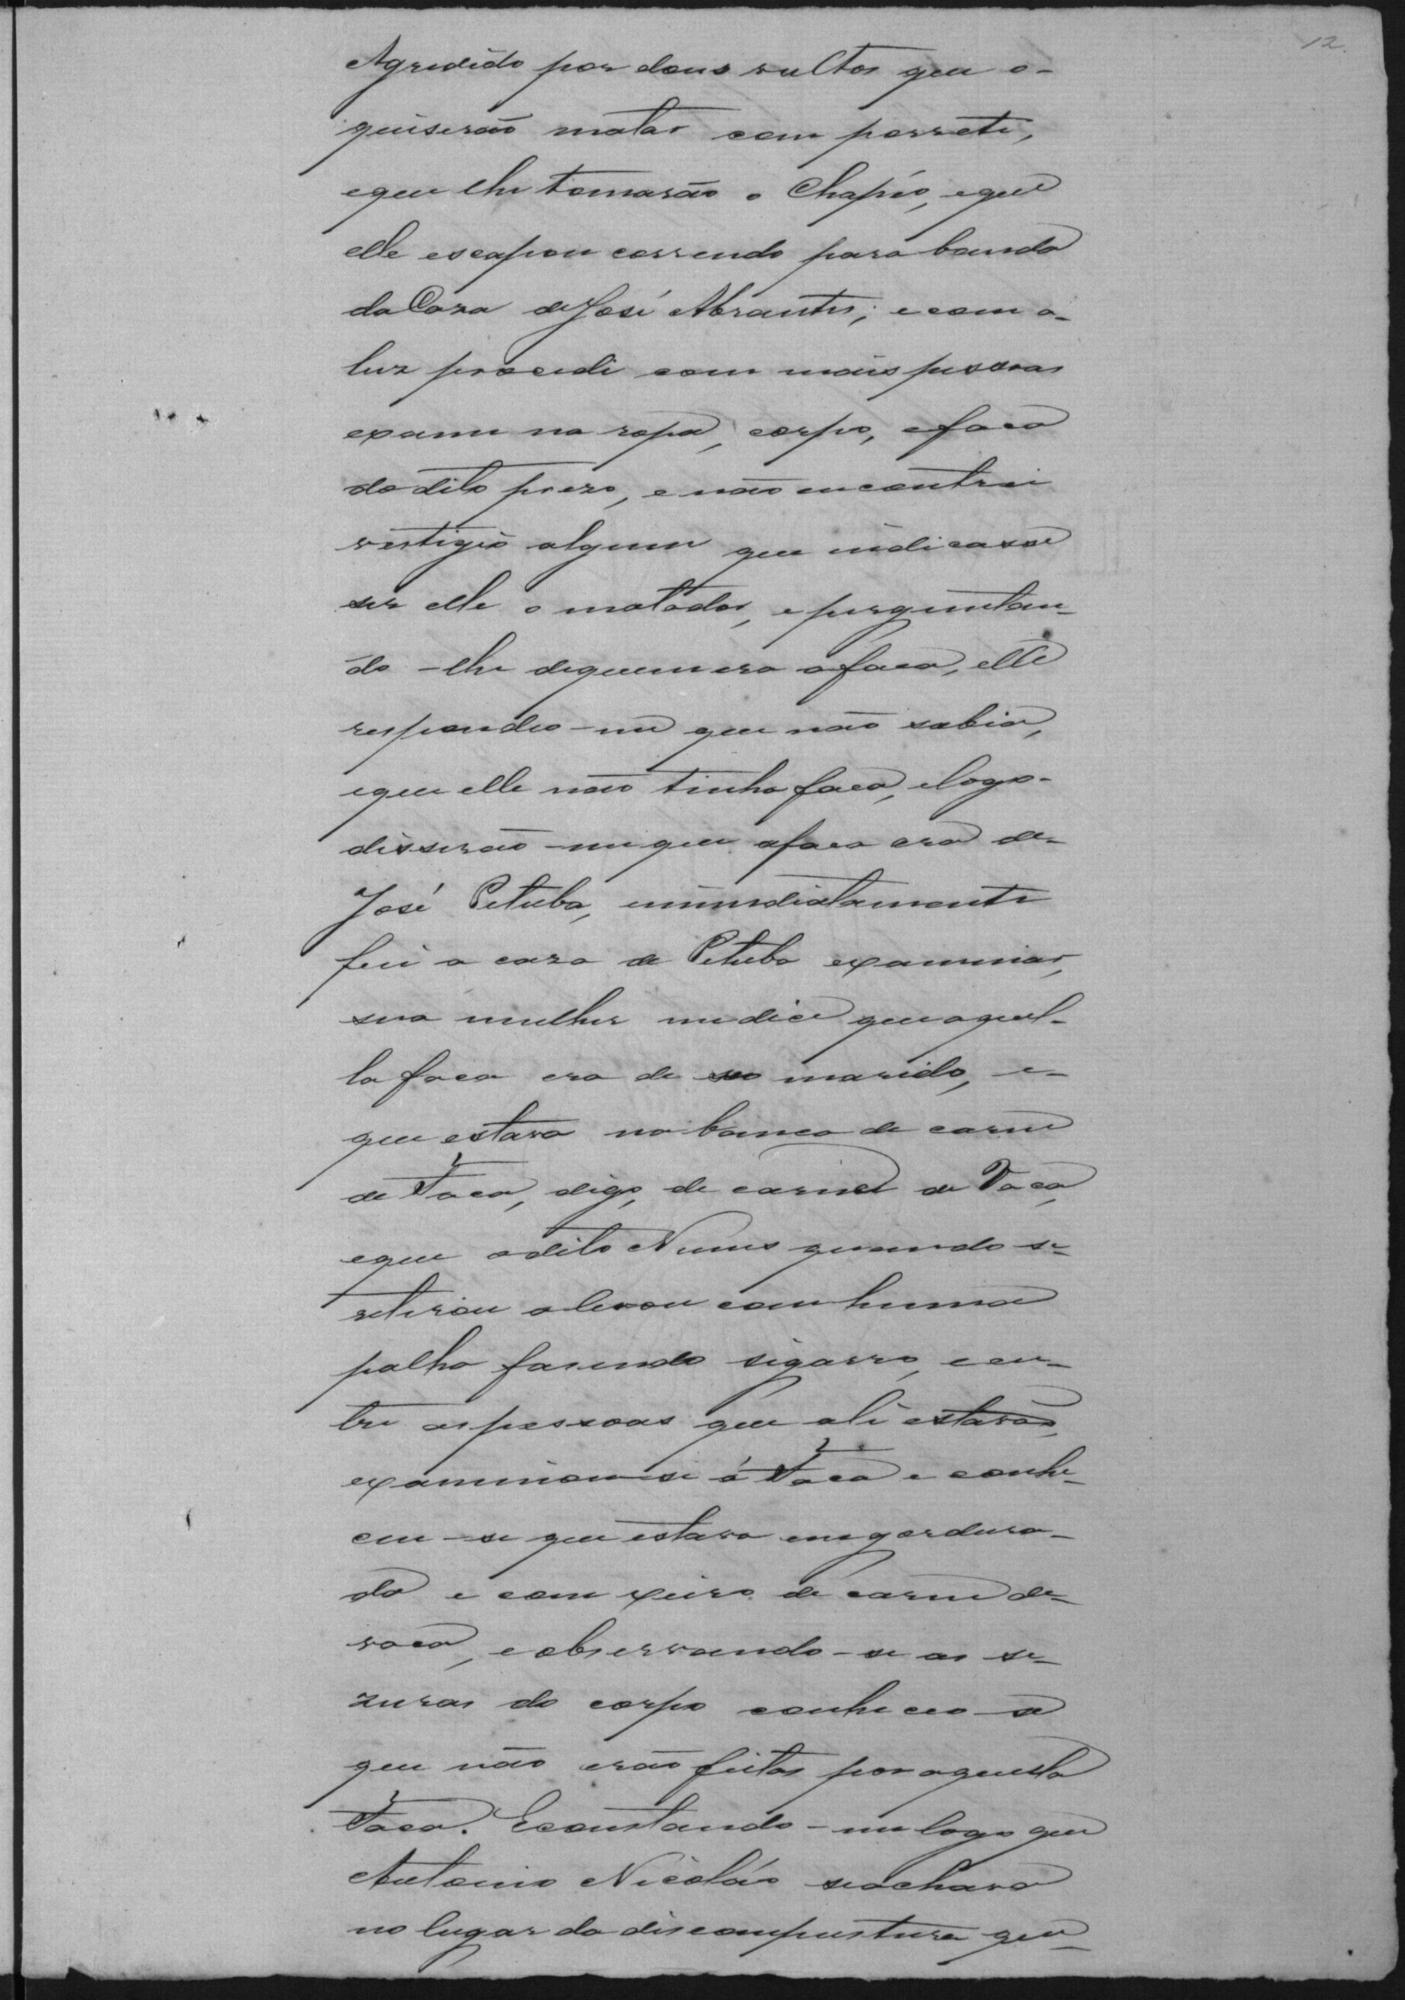 12.
Agredido por dous vultos que o-
quiserão matar com porrete,
eque lhe tomarão o Chapéo, eque
elle escapou correndo para banda
da Caza de José Abrantes; e com a-
luz procedi com mais pessoas
exame na ropa, corpo, efaca
do dito prezo, e não encontrei
vestigio algum que indicasse
ser elle o matador, e perguntan-
do-lhe dequem era afaca, elle
respondeo-me que não sabia,
eque elle não tinha faca, elogo-
disserão-me que afaca era de-
José Pituba, immediatamente
fui a caza de Pituba examinar,
sua mulher me dice que aquel-
la faca era de seo marido, e-
que estava no banco de carne
de Faca, digo, de carne de Vaca,
eque odito Nunes quando se-
retirou a levou com huma
palha fasendo sigarro, e en-
tre as pessoas que ali estavão,
examinou-se a Faca e conhe-
ceu-se que estava engordura-
da e com xeiro de carne de-
vaca, e observando-se as se-
zuras do corpo conheceo-se
que não erão feitas por aquella
Faca. Econstando-me logo que
Antonio Nicoláo seachava
no lugar da discompustura que-